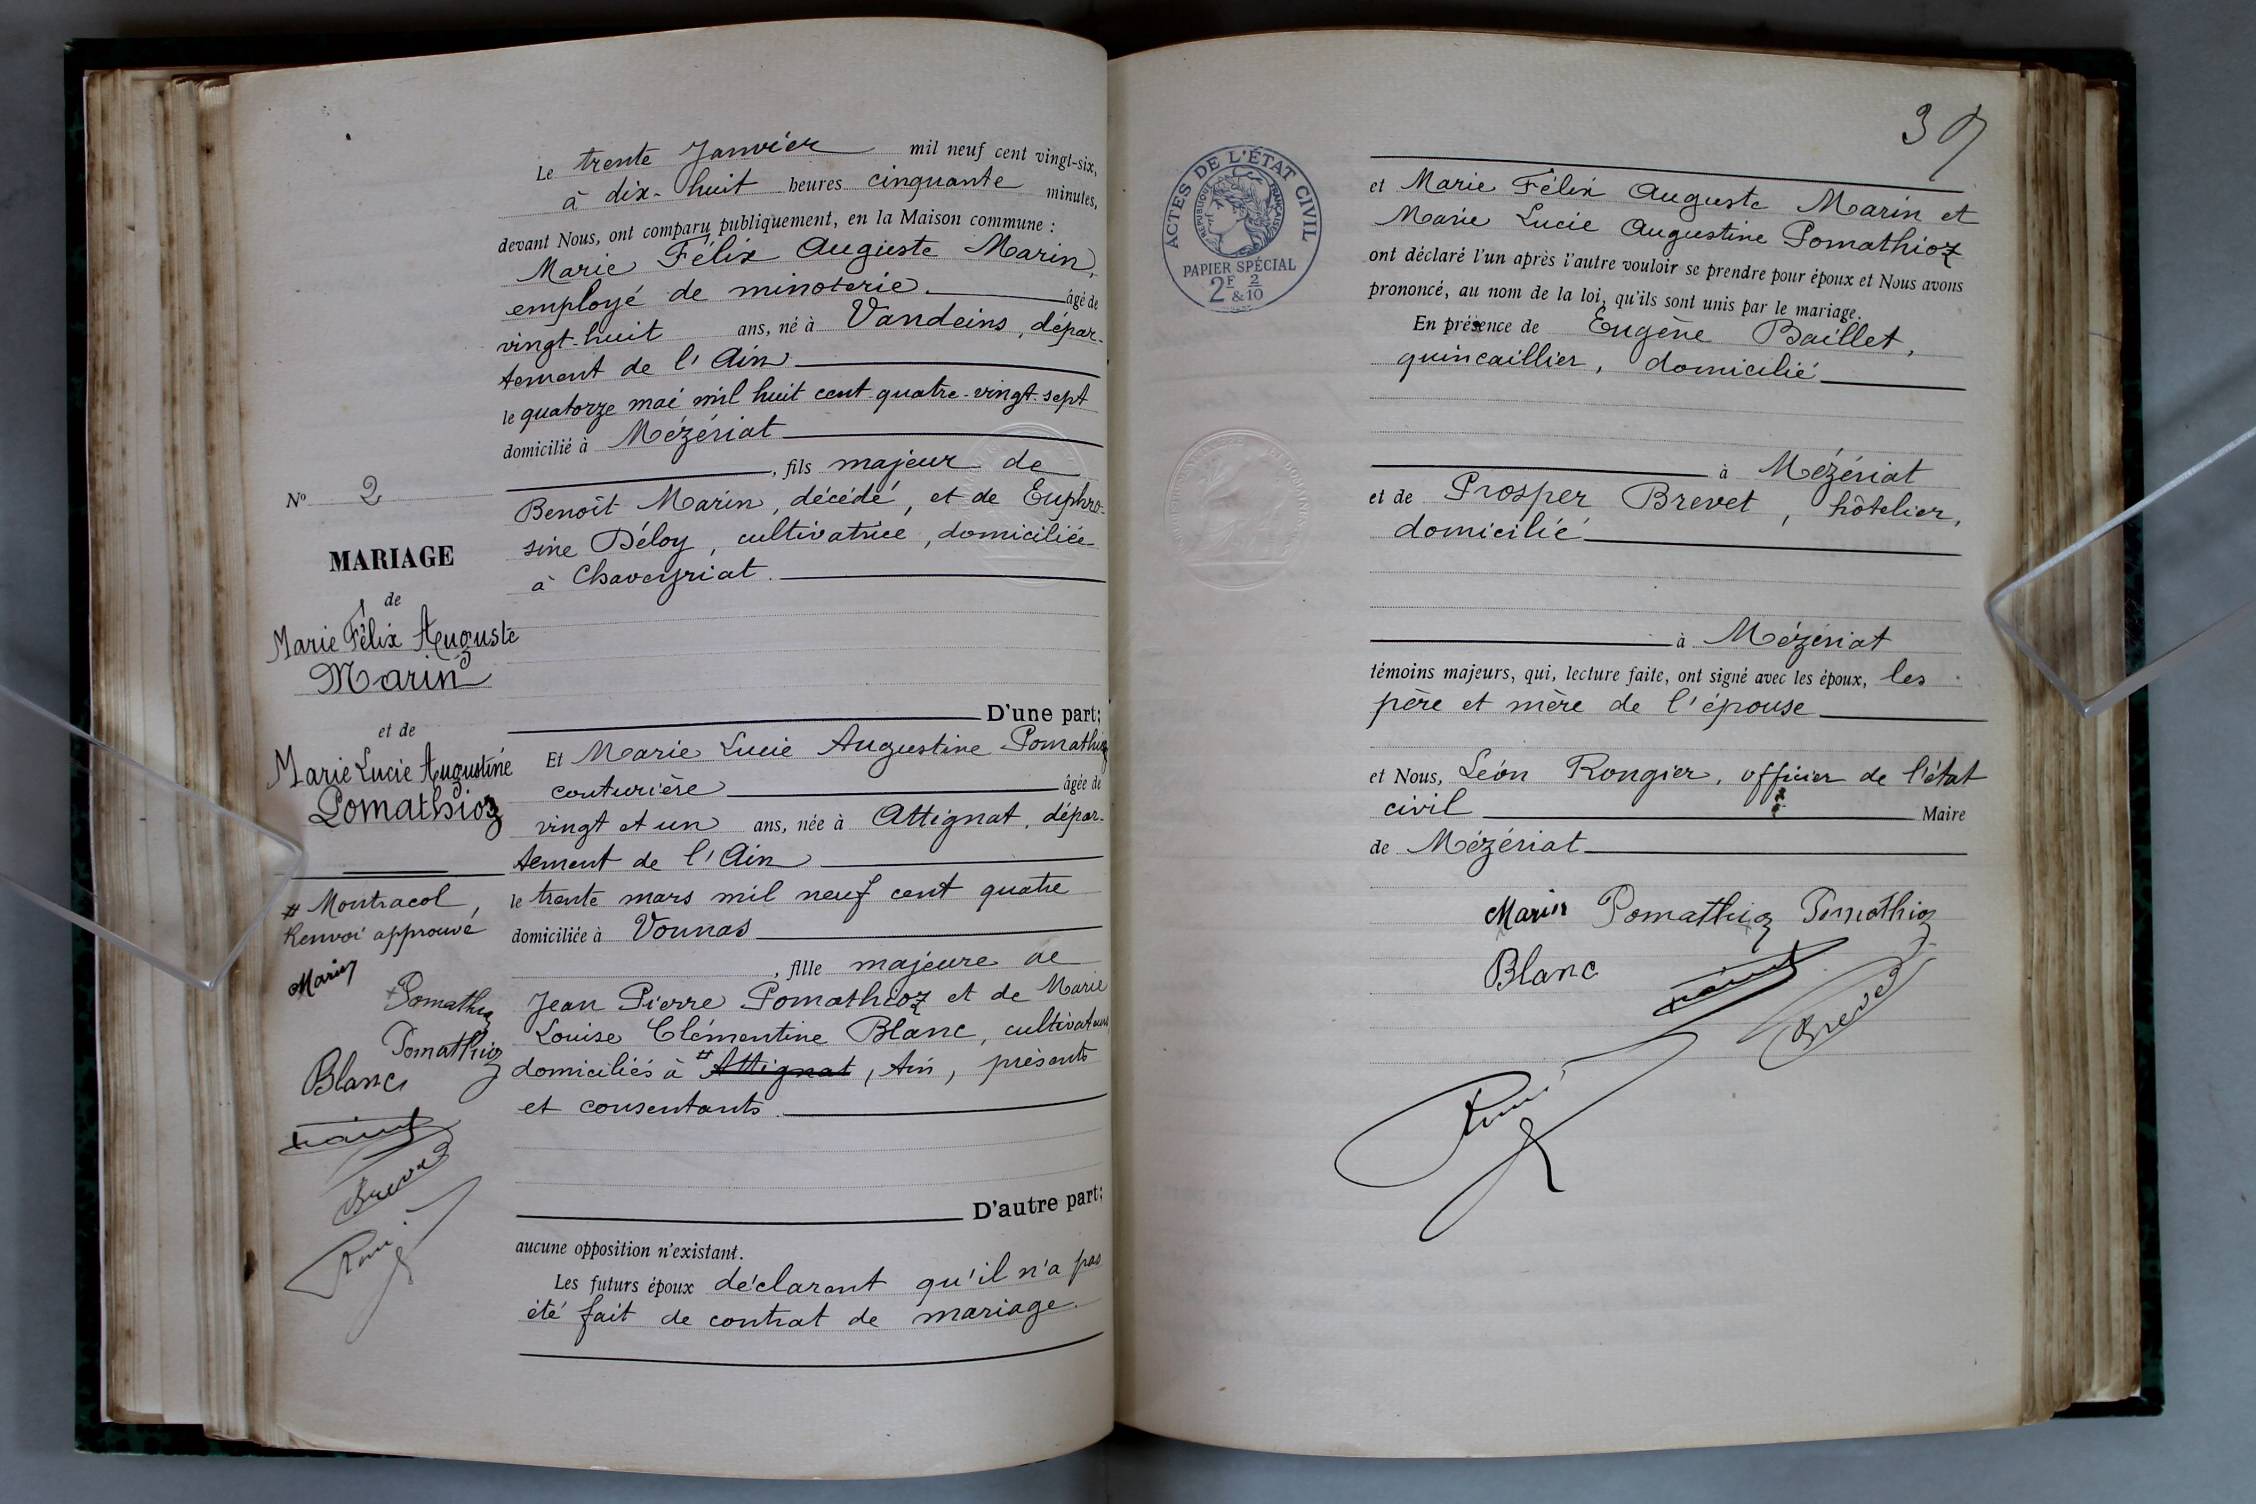 Le trente Janvier mil neuf cent vingt-six,
à dix-huit heures cinquante minutes,
devant Nous, ont comparu publiquement, en la Maison commune :
Marie Félix Auguste Marin,
employé de minoterie. âgé de
vingt-huit ans, né à Vandeins, dépar-
tement de l'Ain
le quatorze mai mil huit cent quatre-vingt-sept
domicilié à Mézériat
, fils majeur de
Benoît Marin, décédé, et de Euphro-
sine Déloy, cultivatrice, domiciliée
à Chaveyriat.
D'une part;
Et Marie Lucie Augustine Pomathioz
couturière âgée de
vingt et un ans, née à Attignat, dépar-
tement de l'Ain
le trente mars mil neuf cent quatre
domiciliée à Vonnas
, fille majeure de
Jean Pierre Pomathioz et de Marie
Louise Clémentine Blanc, cultivateurs,
domiciliés à # Attignat, Ain, présents
et consentants.
D'autre part;
aucune opposition n'existant.
Les futurs époux déclarent qu'il n'a pas
été fait de contrat de mariage.
N° 2
MARIAGE
de
Marie Félix Auguste
Marin
et de
Marie Lucie Augustine
Pomathioz
# Montracol,
Renvoi approuvé
Marin
Pomathioz
Pomathioz
Blanc
Brevet
39
ACTES DE L'ÉTAT CIVIL
RÉPUBLIQUE FRANÇAISE
PAPIER SPÉCIAL
2F 2
& 10
et Marie Félix Auguste Marin et
Marie Lucie Augustine Pomathioz
ont déclaré l'un après l'autre vouloir se prendre pour époux et Nous avons
prononcé, au nom de la loi, qu'ils sont unis par le mariage.
En présence de Eugène Baillet,
quincaillier, domicilié
à Mézériat
et de Prosper Brevet, hôtelier,
domicilié
à Mézériat
témoins majeurs, qui, lecture faite, ont signé avec les époux, les
père et mère de l'épouse
et Nous, Léon Rongier, officier de l'état
civil Maire
de Mézériat
Marin Pomathioz Pomathioz
Blanc
Brevet